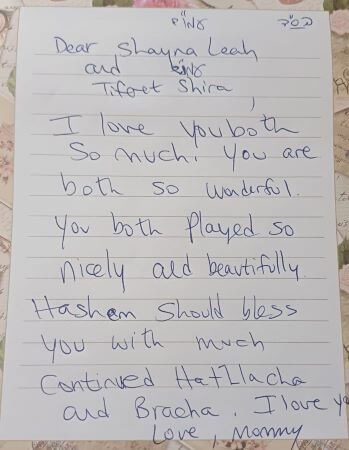 בס"ד
Dear Shayna Leah
and
Tiferet Shira,
I love you both
So much. You are
both so wonderful.
You both played so
nicely and beautifully.
Hashem should bless
you with much
Continued Hatzlacha
and Bracha. I love you
Love, Mommy